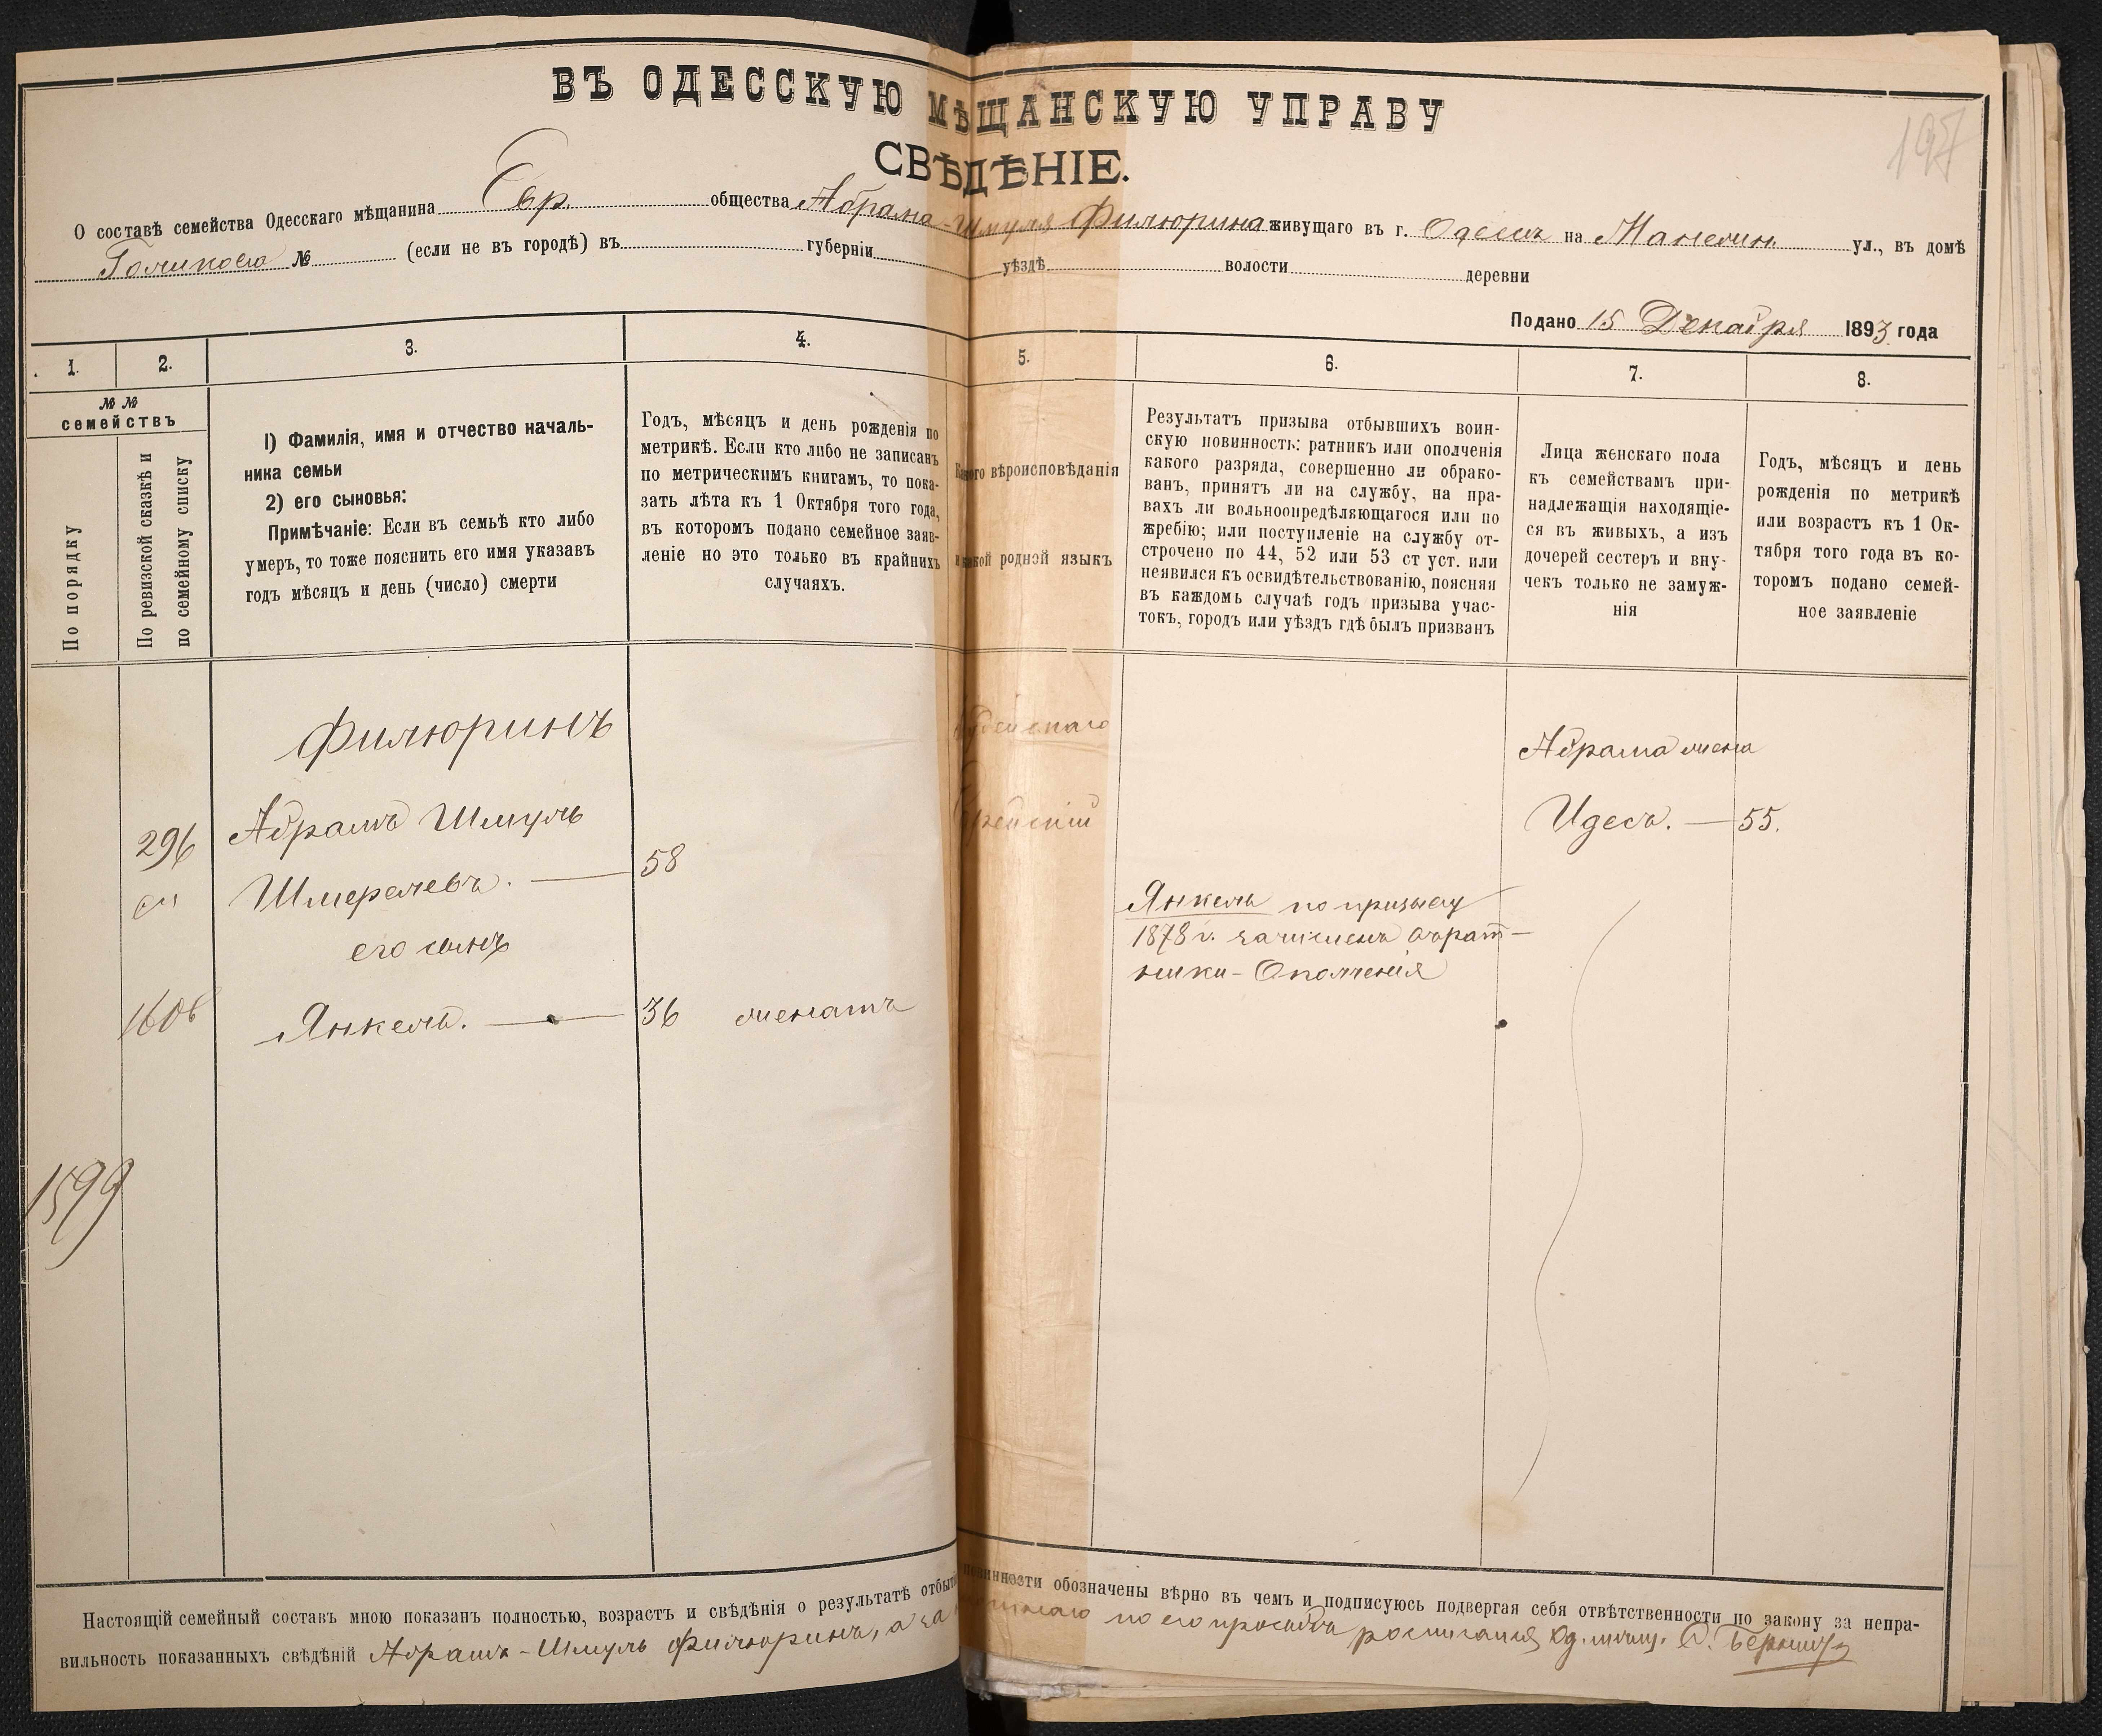 ВЪ ОДЕССКУЮ МѢЩАНСКУЮ УПРАВУ
197
СВѢДѢНІЕ.
О составѣ семейства Одесскаго мѣщанина Евр. общества Абрама-Шмуля Филюрина живущаго въ г. Одессѣ на ул., въ домѣ
Голикова № (если не въ городѣ) въ губерніи уѣздѣ волости деревни
Подано 15 Декабря 1893 года
1. 2. 3. 4. 5. 6. 7. 8.
№ №
семействъ
По порядку
По ревизской сказкѣ и
по семейному списку
1) Фамилія, имя и отчество началь-
ника семьи
2) его сыновья:
Примѣчаніе: Если въ семьѣ кто либо
умеръ, то тоже пояснить его имя указавъ
годъ мѣсяцъ и день (число) смерти
Годъ, мѣсяцъ и день рожденія по
метрикѣ. Если кто либо не записанъ
по метрическимъ книгамъ, то пока-
зать лѣта къ 1 Октября того года,
въ которомъ подано семейное заяв-
леніе но это только въ крайнихъ
случаяхъ.
Какого вѣроисповѣданія
и какой родной языкъ
Результатъ призыва отбывшихъ воин-
скую повинность: ратникъ или ополченія
какого разряда, совершенно ли обрако-
ванъ, принятъ ли на службу, на пра-
вахъ ли вольноопредѣляющагося или по
жребію; или поступленіе на службу от-
строчено по 44, 52 или 53 ст уст. или
неявился къ освидѣтельствованію, поясняя
въ каждомъ случаѣ годъ призыва учас-
токъ, городъ или уѣздъ гдѣ былъ призванъ
Лица женскаго пола
къ семействамъ при-
надлежащія находящіе-
ся въ живыхъ, а изъ
дочерей сестеръ и вну-
чекъ только не замуж-
нія
Годъ, мѣсяцъ и день
рожденія по метрикѣ
или возрастъ къ 1 Ок-
тября того года въ ко-
торомъ подано семей-
ное заявленіе
Филюринъ
Іудейскаго
Абрама жена
296 Абрамъ Шмуль
Еврейскій
Идесъ. — 55.
Шмерелевъ. — 58
его сынъ
Янкель по призыву
1878 г. зачисленъ въ рат-
ники - Ополченія
1606 Янкель. — 36 женатъ
1599
Настоящій семейный составъ мною показанъ полностью, возрастъ и свѣдѣнія о результатѣ отбытія повинности обозначены вѣрно въ чемъ и подписуюсь подвергая себя отвѣтственности по закону за непра-
вильность показанныхъ свѣдѣній Абрамъ-Шмуль Филюринъ, а за по его просьбѣ росписался Од. мѣщ.